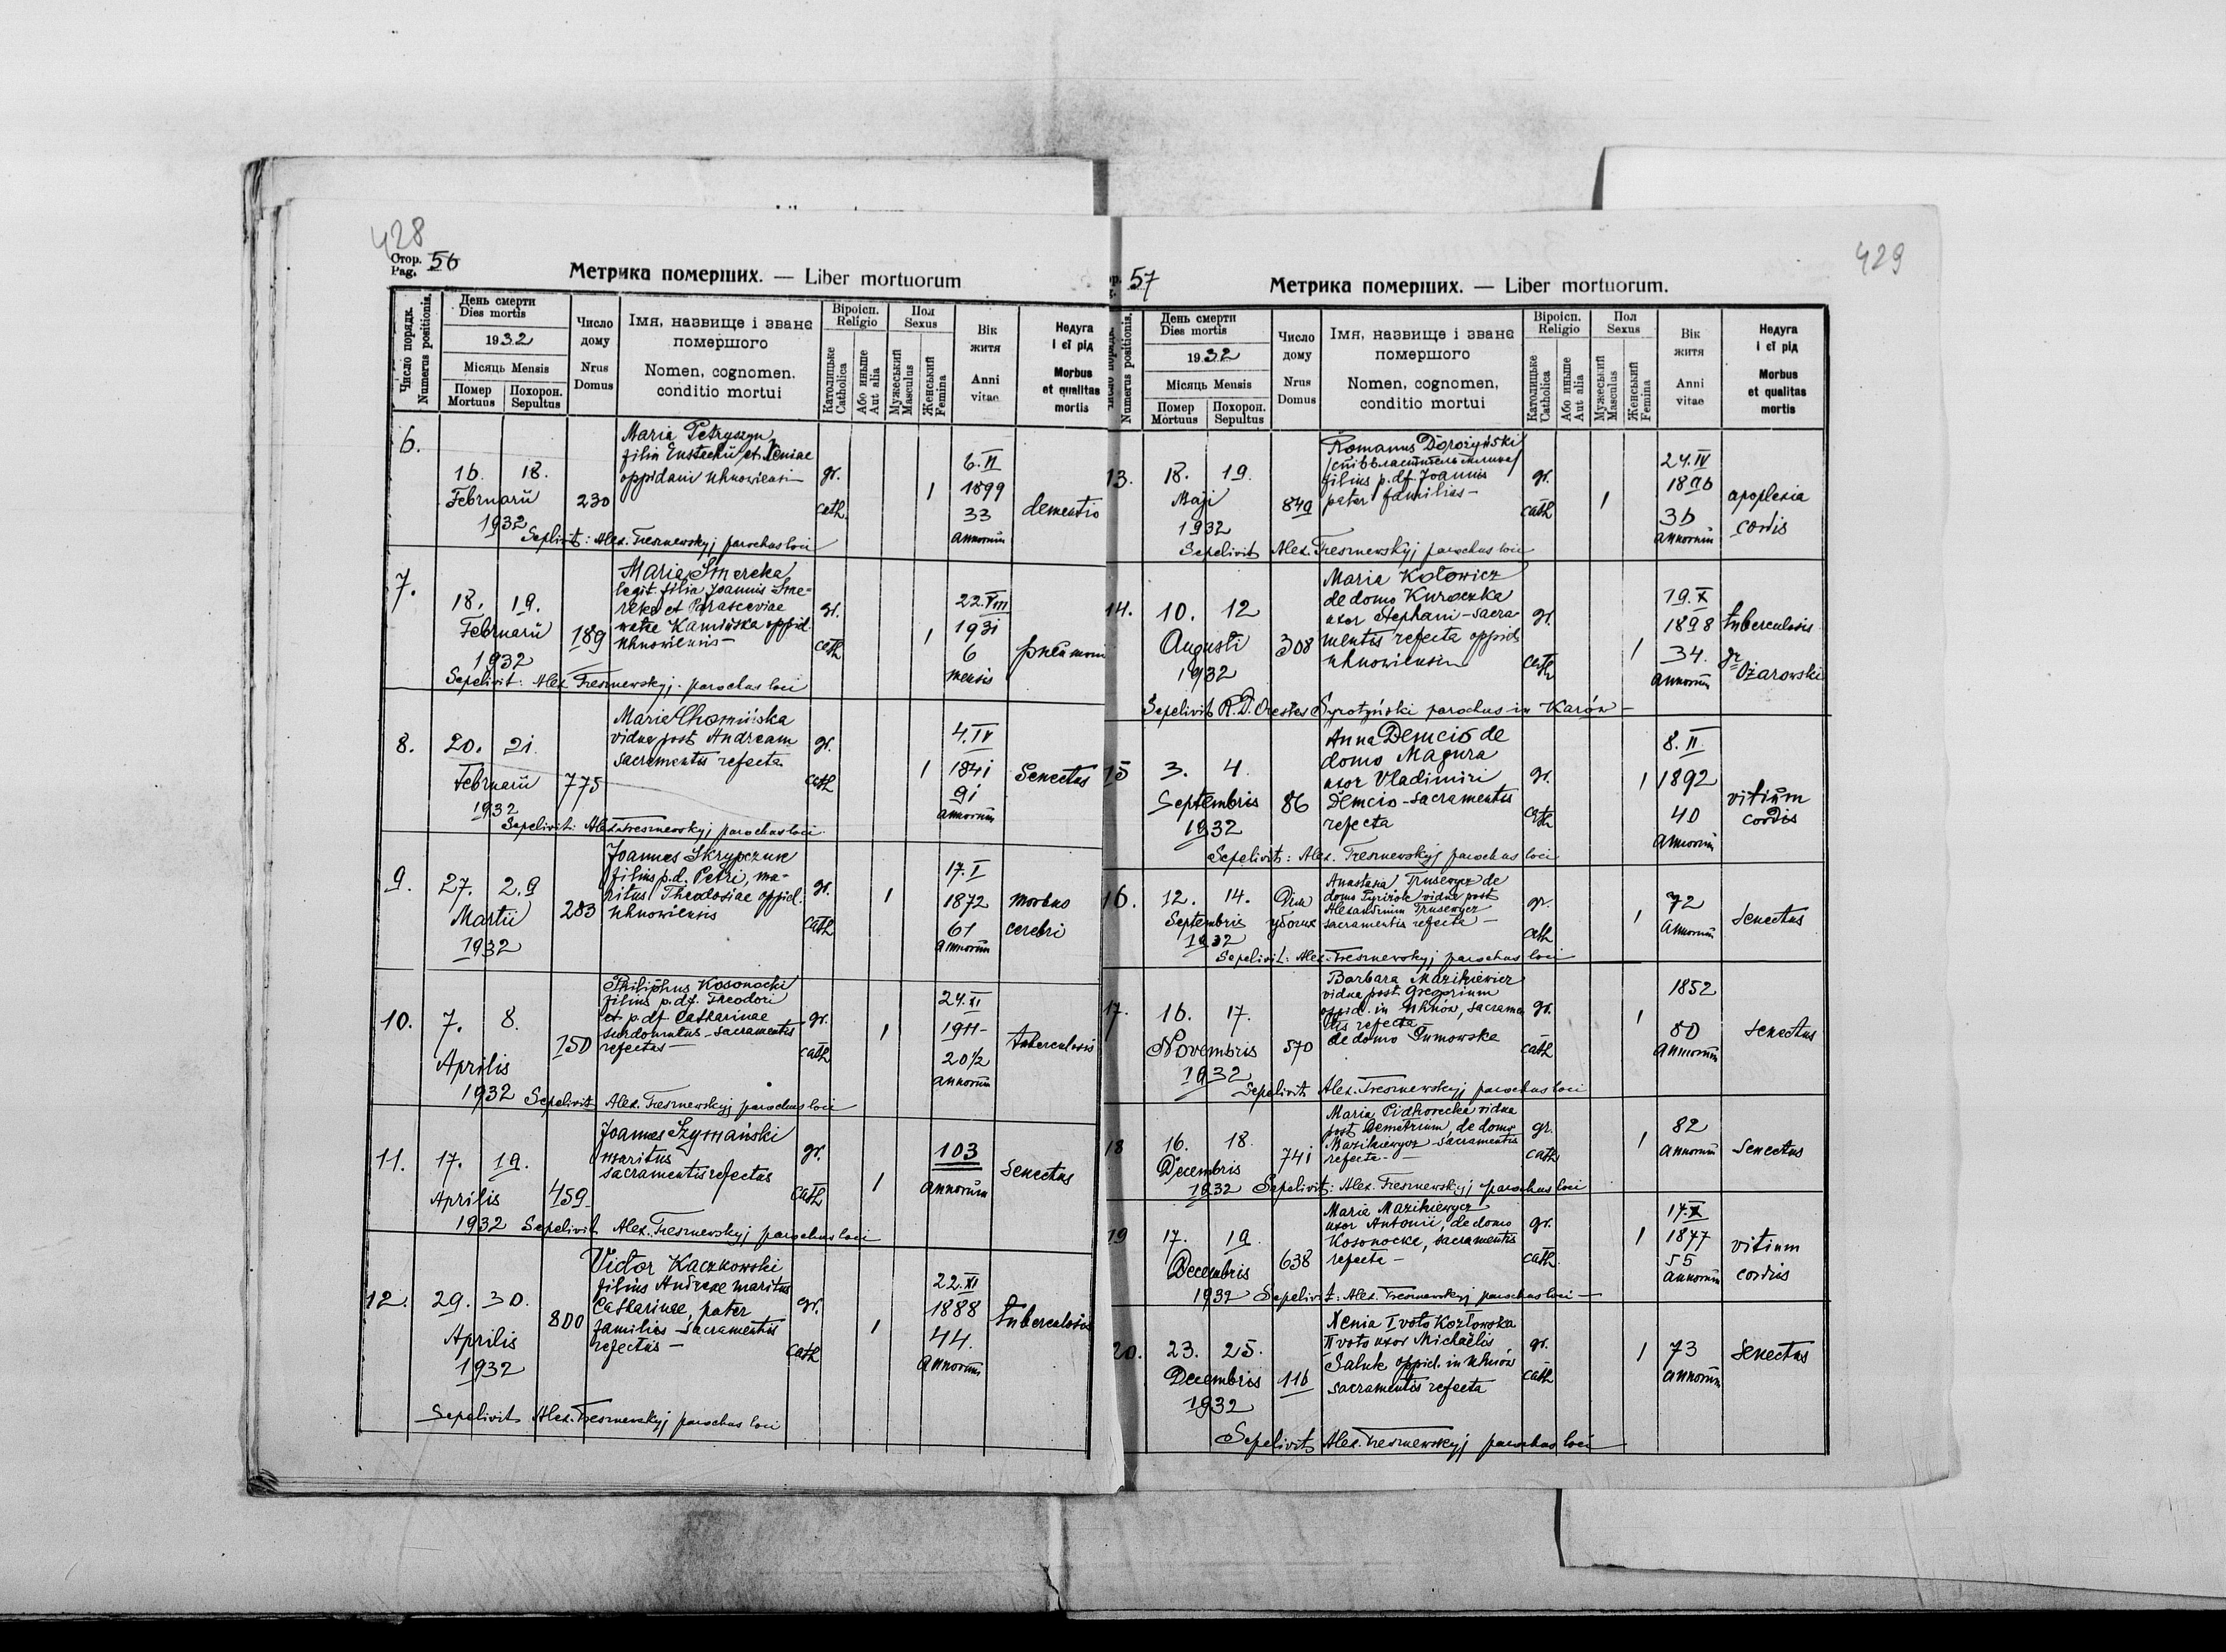 428
Стор. Pag. 56
Метрика померших. — Liber mortuorum
Число порядк. Numerus positionis.
День смерти Dies mortis
1932
Місяць Mensis
Помер Mortuus
Похорон. Sepultus
Число дому Nrus Domus
Імя, назвище і званє помершого
Nomen, cognomen. conditio mortui
Віроісп. Religio
Католицьке Catholica
Або иньше Aut alia
Пол Sexus
Мужеський Masculus
Женський Femina
Вік житя Anni vitae
Недуга і єї рід Morbus et qualitas mortis
6.
16. 18.
Februarii
1932
230
Maria Petryszyn
filia Eustachii et Xeniae
oppidani Uhnowiensi
gr.
cath.
1
6.II
1899
33
annorum
dementio
Sepelivit: Alex. Tresznewskyj parochus loci
7.
18. 19.
Februarii
1932
189
Maria Smereka
legit. filia Joannis Sme-
reka et Parasceviae
natae Kamińska oppid.
Uhnowiensis —
gr.
cath
1
22.VIII
1931
6
mensis
pneumon
Sepelivit: Alex Tresznewskyj. parochus loci
8.
20. 21.
Februarii
1932
775
Maria Chomińska
vidua post Andream
sacramentis refecta
gr.
cath
1
4.IV
1841
91
annorum
Senectus
Sepelivit: Alex Tresznewskyj parochus loci
9.
27. 29
Martii
1932
283
Joannes Skrypczuk
filius p.d. Petri, ma-
ritus Theodosiae oppid.
Uhnowiensis
gr.
cath
1
17.I
1872
61
annorum
morbus
cerebri
10.
7. 8.
Aprilis
1932
150
Philiphus Kosonocki
filius p.df. Theodori
et p.df. Catharinae
surdomutus - sacramentis
refectus —
gr.
cath
1
24.XI
1911 -
20 1/2
annorum
tuberculosis
Sepelivit Alex. Tresznewskyj parochus loci
11.
17. 19.
Aprilis
1932
459
Joannes Szymański
maritus
sacramentis refectus
gr.
cath
1
103
annorum
Senectus
Sepelivit Alex. Tresznewskyj parochus loci
12.
29. 30.
Aprilis
1932
800
Victor Kaczkowski
filius Andreae maritus
Catharinae, pater
familias - sacramentis
refectus —
gr.
cath
1
22.XI
1888
44.
annorum
tuberculosis
Sepelivit Alex. Tresznewskyj parochus loci
429
57
Метрика померших. — Liber mortuorum.
Numerus positionis.
День смерти Dies mortis
1932
Місяць Mensis
Помер Mortuus
Похорон. Sepultus
Число дому Nrus Domus
Імя, назвище і званє помершого
Nomen, cognomen, conditio mortui
Віроісп. Religio
Католицьке Catholica
Або иньше Aut alia
Пол Sexus
Мужеський Masculus
Женський Femina
Вік житя Anni vitae
Недуга і єї рід Morbus et qualitas mortis
13.
18. 19.
Maji
1932
849
Romanus Dorożyński
/співвластитель млина/
filius p.df. Joannis
pater familias —
gr.
cath
1
24.IV
1896
36
annorum
apoplexia
cordis
Sepelivit Alex. Tresznewskyj parochus loci
14.
10. 12
Augusti
1932
308
Maria Kotowicz
de domo Kuroczka
uxor Stephani - sacra
mentis refecta oppid.
Uhnowiensis
gr.
cath
1
19.X
1898
34.
annorum
tuberculosis
Ożarowski
Sepelivit R.D. Orestes Syrotyński parochus in Karów —
15
3. 4.
Septembris
1932
86
Anna Demcio de
domo Magura
uxor Vladimiri
Demcio - sacramentis
refecta
gr.
cath
1
8.II.
1892
40
annorum
vitium
cordis
Sepelivit: Alex. Tresznewskyj parochus loci
16.
12. 14.
Septembris
1932
Дім
убогих
Anastasia Trusewycz de
domo vidua post
Alexandrum Trusewycz
sacramentis refecta —
gr.
cath
1
72
annorum
Senectus
Sepelivit: Alex. Tresznewskyj parochus loci
17.
16. 17.
Novembris
1932
570
Barbara Mazikiewicz
vidua post Gregorium
oppid. in Uhnów, sacramen
tis refecta
de domo Šumowska
gr.
cath
1
1852
80
annorum
Senectus
Sepelivit Alex. Tresznewskyj parochus loci
18
16. 18.
Decembris
1932
741
Maria Pidhorecka vidua
post Demetrium, de domo
Mazikiewycz sacramentis
refecta —
gr.
cath
1
82
annorum
Senectus
Sepelivit: Alex. Tresznewskyj parochus loci
19
17. 19.
Decembris
1932
638
Maria Mazikiewycz
uxor Antonii, de domo
Kosonocka, sacramentis
refecta —
gr.
cath.
1
17.X
1877
55
annorum
vitium
cordis
Sepelivit: Alex. Tresznewskyj parochus loci —
20.
23. 25.
Decembris
1932
116
Xenia I voto Kozłowska
II voto uxor Michaëlis
Saluk oppid. in Uhnów
sacramentis refecta
gr.
cath
1
73
annorum
Senectus
Sepelivit Alex. Tresznewskyj parochus loci